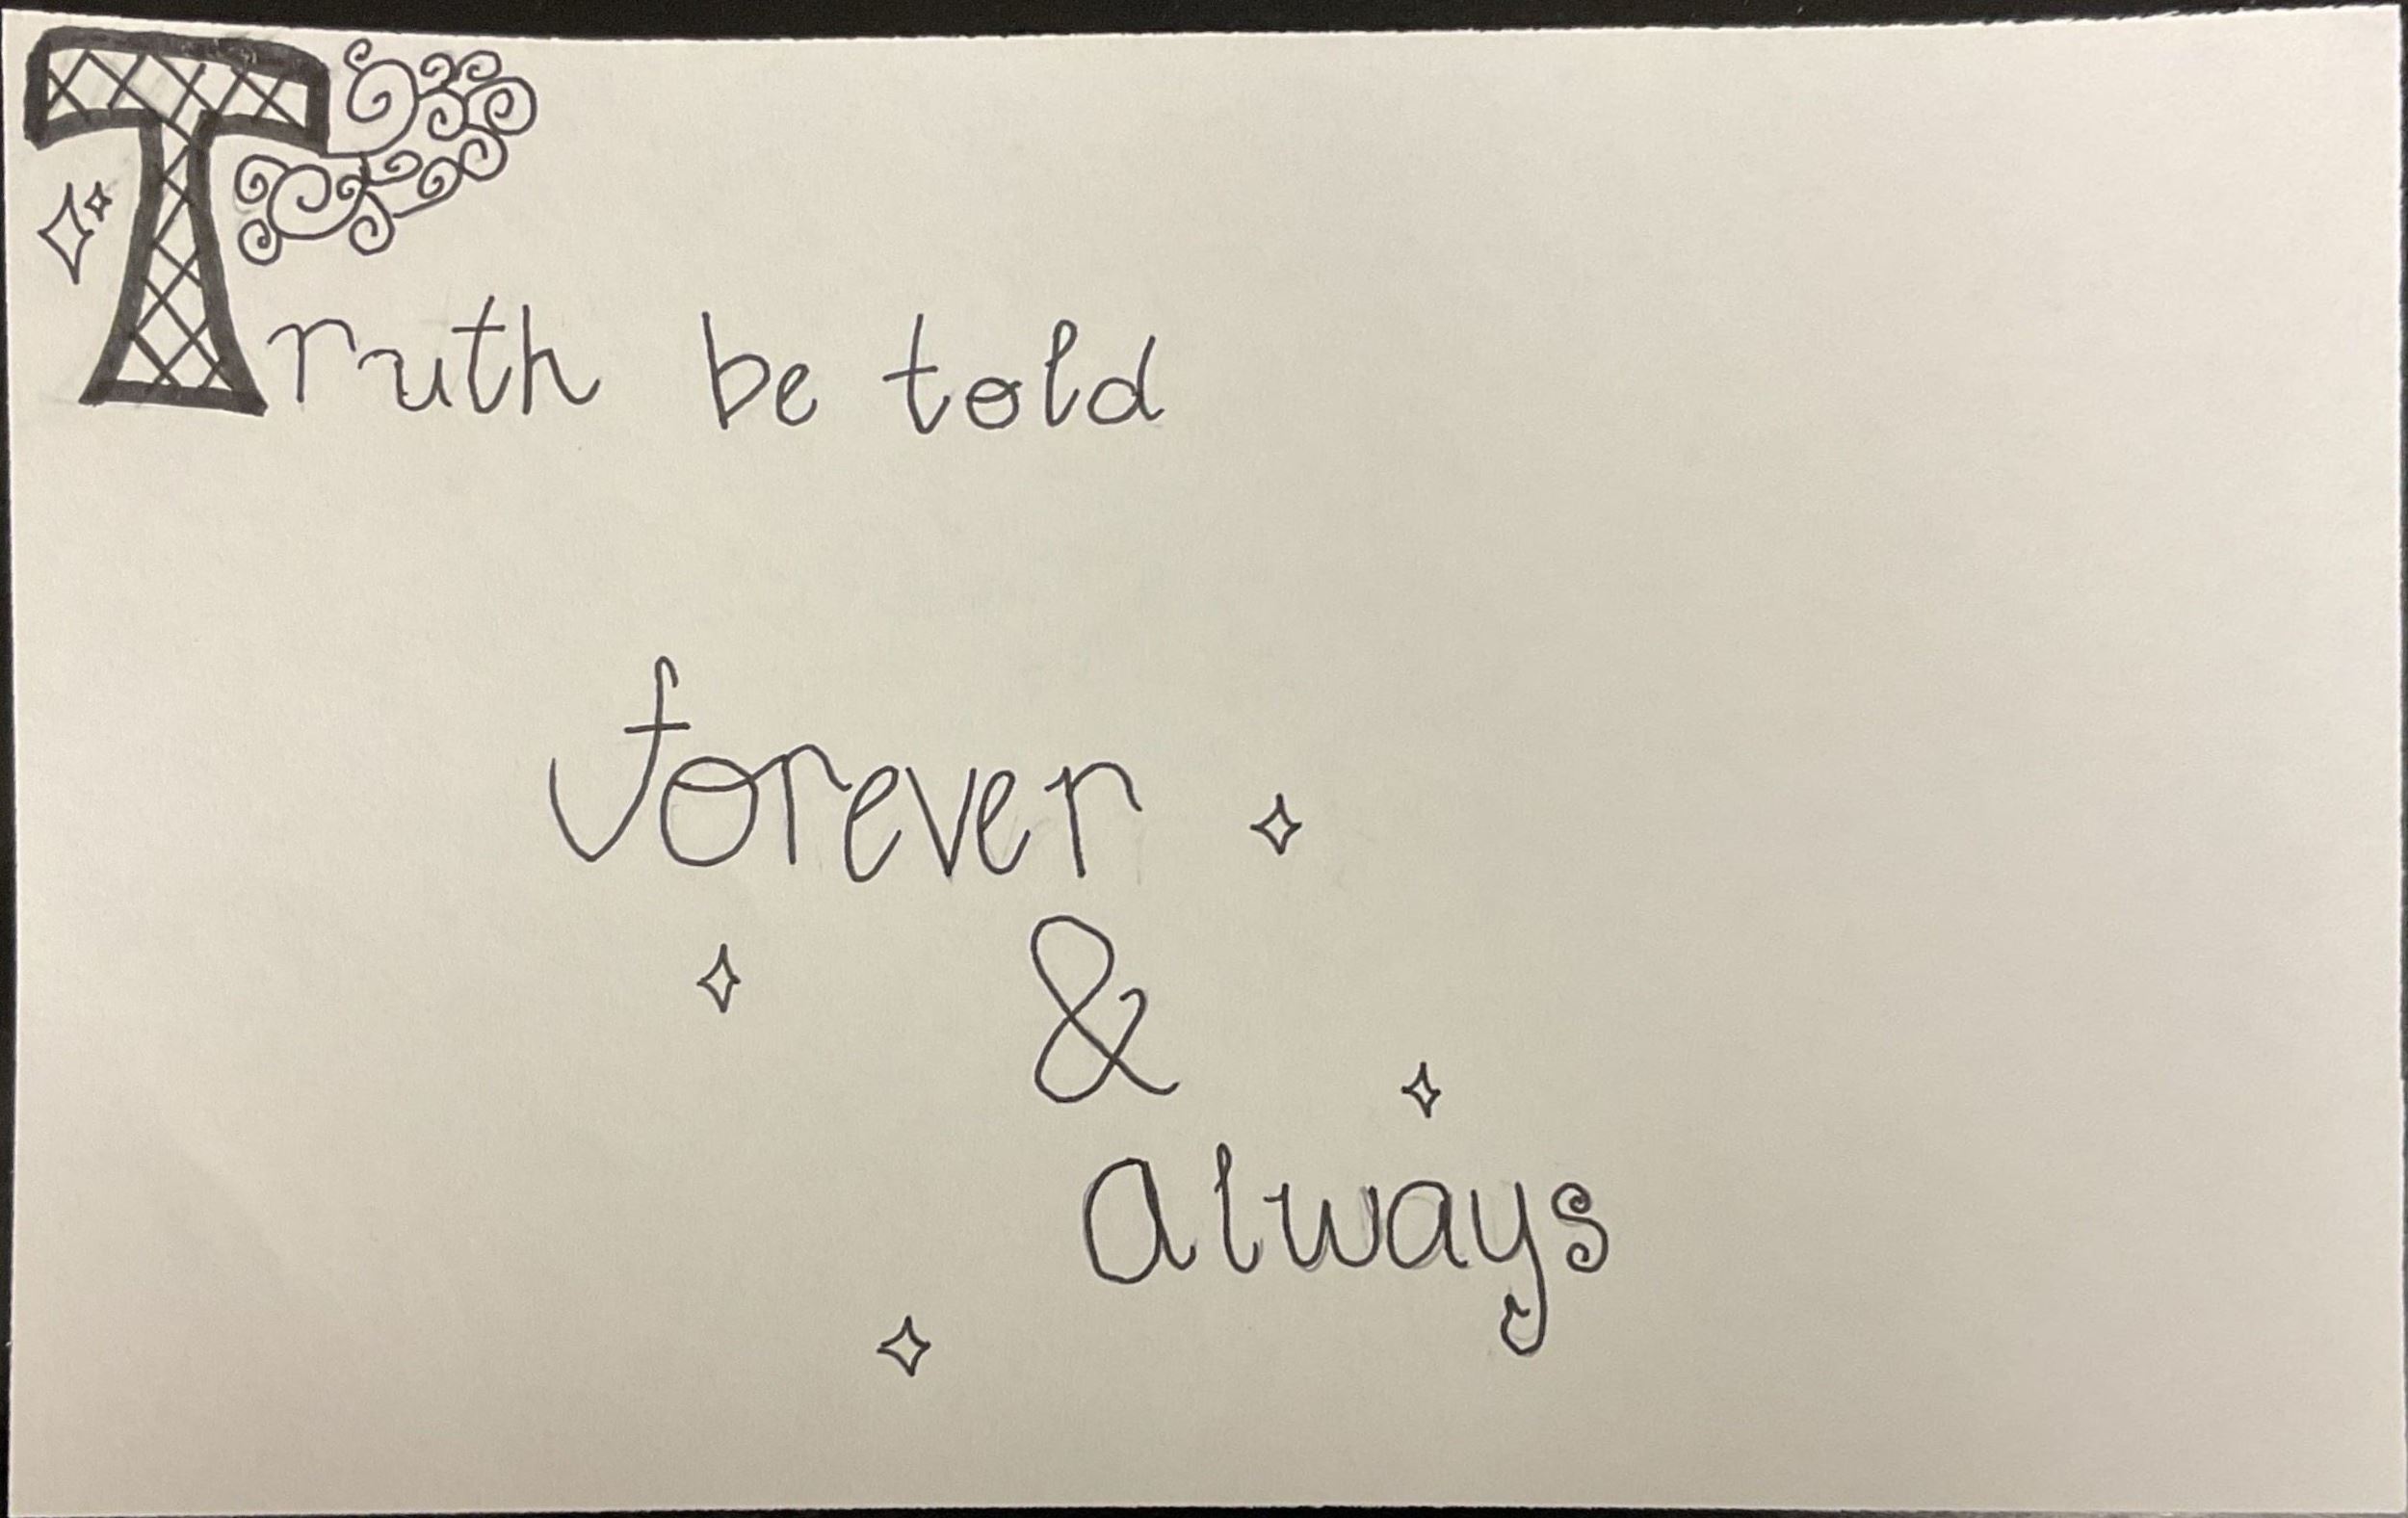 Truth be told
forever
&
always